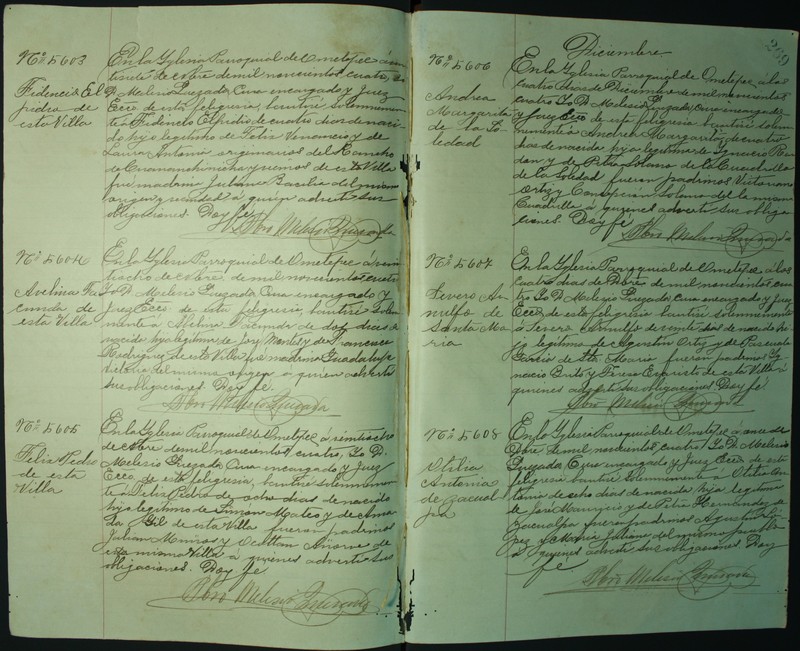 Nº 5603
Federico El
pidio de
esta Villa
En la Yglesia Parroquial de Ometepec á
siete de de mil novecientos cuatro, Yo
D. Melesio Quezada, Cura encargado y Juez
Ecco de esta feligresia, bautisé solemnemen
te á Federico Elpidio de cuatro dias de naci
do, hijo legitimo de Feliz Venancio y de
Laura Antonia originarios del Rancho
de y vecinos de esta Villa
fué madrina Juliana Basilia del mismo
origen y vecindad á quien advertí sus
obligaciones. Doy fé
Pbro Melesio Quezada
Nº 5604
Avelina Fa
cunda de
esta Villa
En la Yglesia Parroquial de Ometepec á vein
tiocho de de mil novecientos cuatro
Yo D. Melesio Quezada Cura encargado y
Juez Ecco de esta feligresia, bautisé solem
nemente á Facunda de dos dias de
nacido hija legitima de José y de Francisca
Rodriguez de esta Villa fué madrina Guadalupe
Victoria del mismo origen á quien advertí
sus obligaciones. Doy fé.
Pbro Melesio Quezada
Nº 5605
Feliz Pedro
de esta
Villa
En la Yglesia Parroquial de Ometepec á veintiocho
de de mil novecientos cuatro, Yo D.
Melesio Quezada Cura encargado y Juez
Ecco de esta feligresia, bautisé solemnemen
te á Feliz Pedro de ocho dias de nacido
hijo legitimo de Simon Mateo y de Ama
da Gil de esta Villa fueron padrinos
Julian Muños y Añorve de
esta misma Villa á quienes advertí sus
obligaciones. Doy fé
Pbro Melesio Quezada
Diciembre
Nº 5606
Andrea
Margarita
de la So
ledad
En la Yglesia Parroquial de Ometepec á los
cuatro dias de Diciembre de mil novecientos
cuatro Yo D. Melesio Quezada, Cura encargado
y Juez Ecco de esta feligresia bautisé solem
nemente á Andrea Margarita de cuatro
dias de nacida, hija legitima de Ignacio Ron
dan y de Petra Solano de la Cuadrilla
de la Soledad fueron padrinos Victoriano
Ortiz y Concepción Solano de la misma
Cuadrilla á quienes advertí sus obliga
ciones. Doy fé
Pbro Melesio Quezada
Nº 5607
Severo Ar
nulfo de
Santa Ma
ria
En la Yglesia Parroquial de Ometepec, á los
cuatro dias de Dbre de mil novecientos cua
tro Yo D. Melesio Quezada Cura encargado y Juez
Ecco, de esta feligresia bautisé solemnemente
á Severo Arnulfo de dias de nacido hi
jo legitimo de Agustin Ortiz y de Pascuala
Garcia de Sta. Maria fueron padrinos Ig
nacio Brito y Teresa Evaristo de esta Villa á
quienes advertí sus obligaciones Doy fé
Pbro Melesio Quezada
Nº 5608
Otilia
Antonia
de Zacual
pa
En la Yglesia Parroquial de Ometepec á once de
Dbre de mil novecientos cuatro Yo D. Melesio
Quezada Cura encargado y Juez Ecco de esta
feligresia bautisé solemnemente á Otilia An
tonia de ocho dias de nacida hija legitima
de José Mauricio y de Petra Hernandez de
Zacualpa fueron padrinos Agustin Ló
pez y Maria Juliana del mismo
á quienes advertí sus obligaciones Doy
fé
Pbro Melesio Quezada